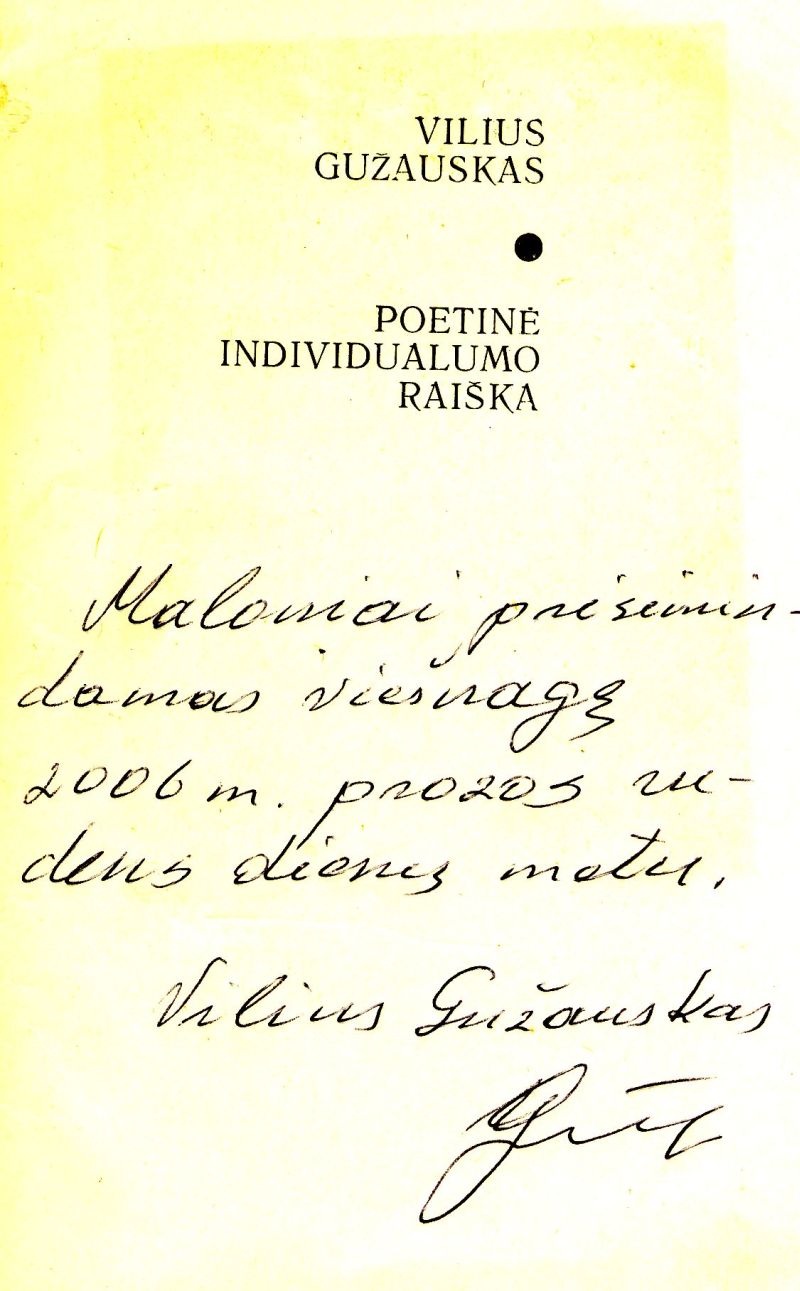 VILIUS
GUŽAUSKAS
POETINĖ
INDIVIDUALUMO
RAIŠKA
Maloniai prisimin-
damas viešnagę
2006 m. prozos ru-
dens dienų metu.
Vilius Gužauskas